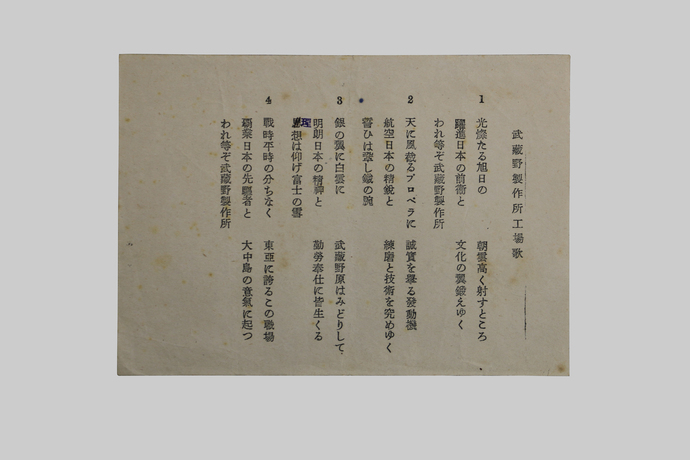 武蔵野製作所工場歌
1
光燦たる旭日の　朝雲高く射すところ
躍進日本の前衛と　文化の翼鍛えゆく
われ等ぞ武蔵野製作所
2
天に風截るプロペラに　誠實を罩る發動機
航空日本の精鋭と　練磨と技術を究めゆく
誓ひは堅し鐵の腕
3
銀の翼に白雲に　武蔵野原はみどりして
明朗日本の精神と　勤勞奉仕に皆生くる
理想は仰げ富士の雪
4
戰時平時の分ちなく　東亞に誇るこの職場
覇業日本の先驅者と　大中島の意氣に起つ
われ等ぞ武蔵野製作所